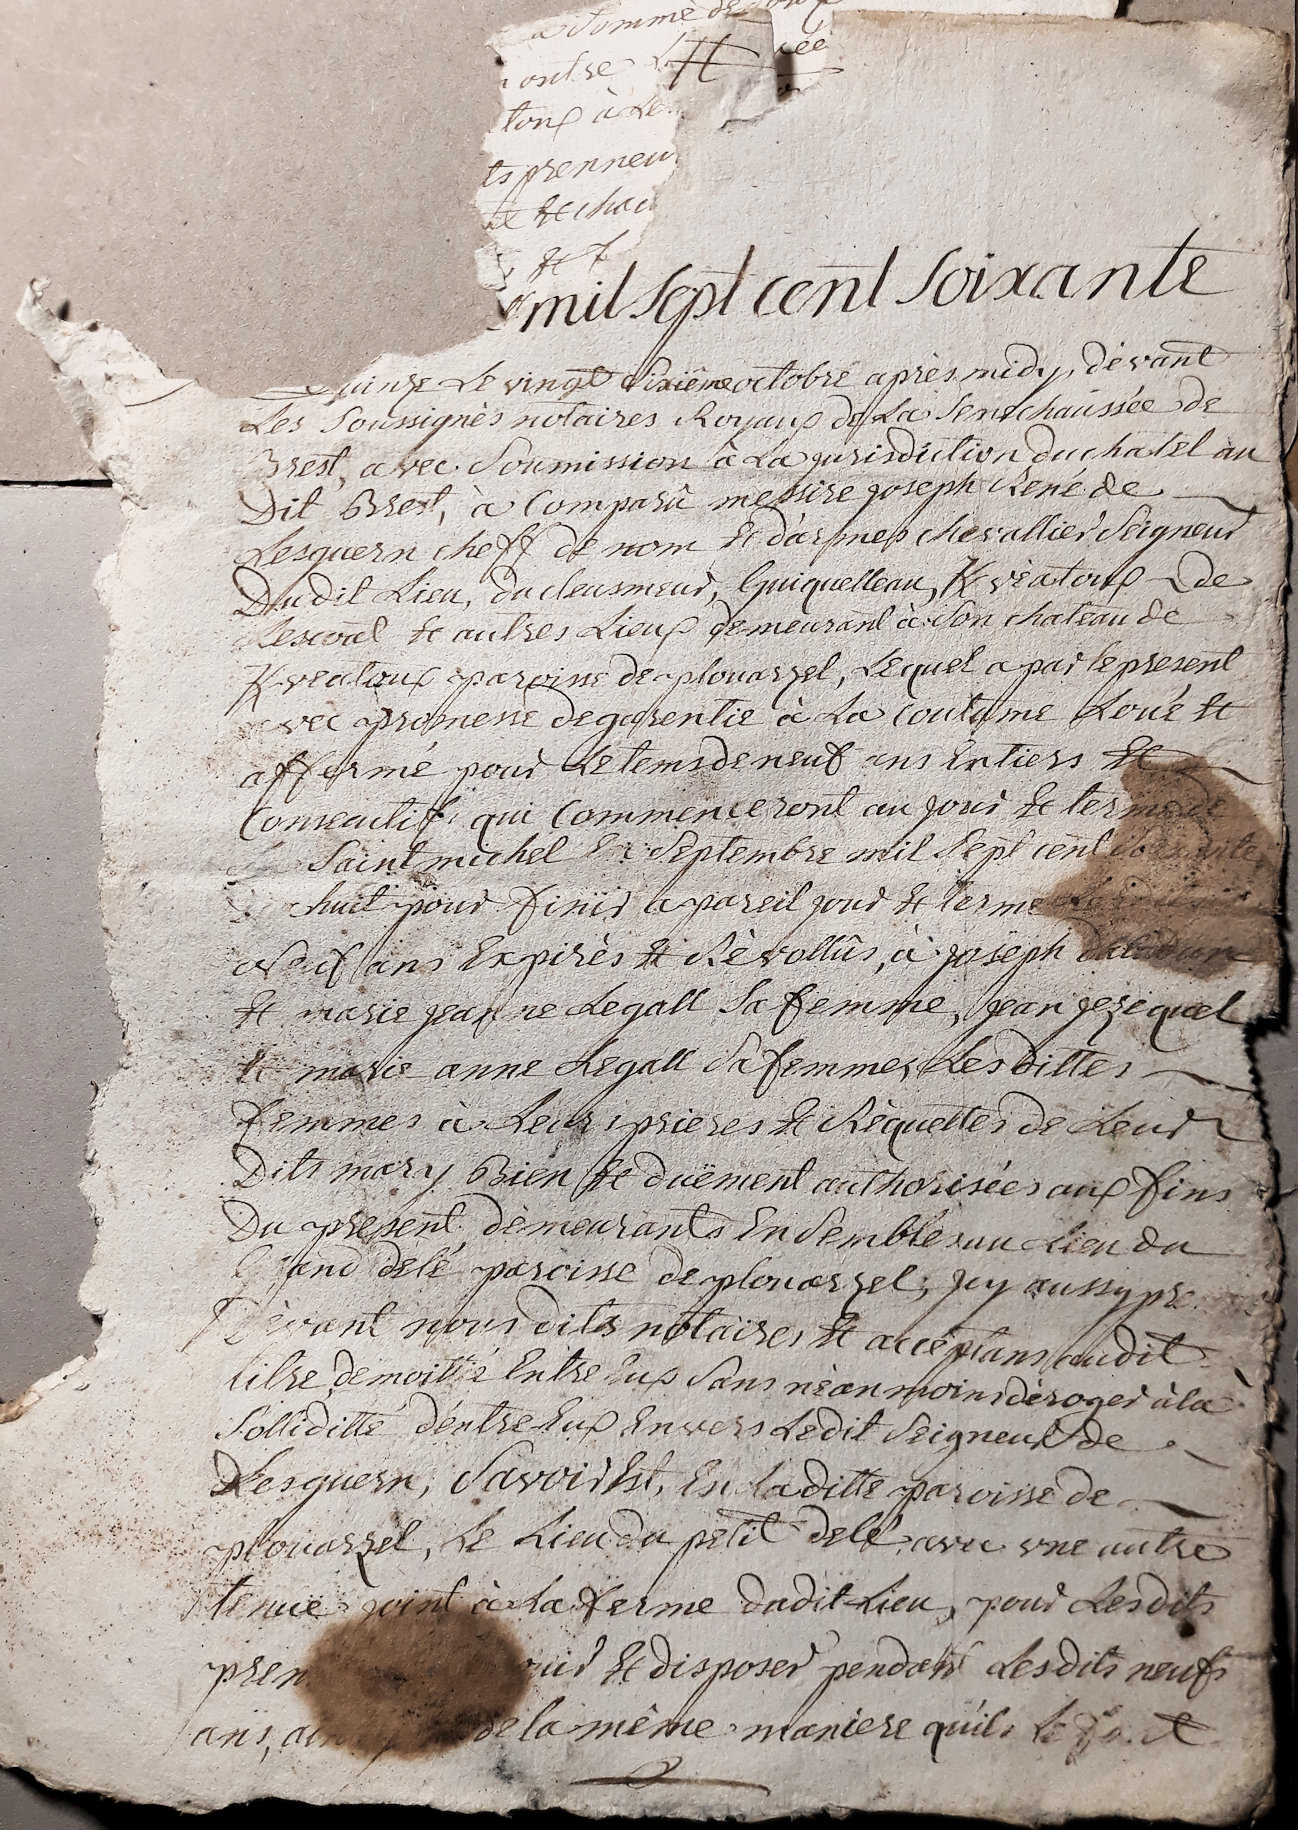 a Somme de
outre
toux à Le
ts prenneu
et chac
& f
mil Sept cent Soixante
Quinze Le vingt Sixième octobre après midy, dévant
Les Soussignés notaires Royaux de La Senechaussée de
Brest, avec Soumission à La jurisdiction du chatel au
Dit Brest, à Comparû messire joseph René de
Lesguern cheff de nom & d'armes chevallier Seigneur
Dudit Lieu, du cleusmeur, Guiquelleau, Kvéatoux de
Lescoat & autres Lieux demeurant à Son chateau de
Kveatoux paroisse de plouarzel, Lequel a par le present
avec promesse de garentie à La Coutume Loué &
affermé pour Le tems de neuf ans Entiers &
Consecutifs qui Commenceront au jour & terme de
Saint michel En Septembre mil Sept cent Soixante
huit pour finir a pareil jour & terme
Neuf ans Expirés & Révollûs, à joseph
& marie jeanne Legall Sa femme, jean jezequel
& marie anne Legall Sa femme, Les Dittes
femmes à Leurs prieres & Réquettes de Leur
Dits mary Bien & duëment authorisées aux fins
Du present, démeurants Ensembles au Lieu du
Grand delé paroisse de plouarzel, jcy aussy pre
Dévant nous dits notaires & acceptans audit
titre de moitié Entre Eux Sans néanmoins déroger à la
Solliditté d'entre Eux Envers Ledit Seigneur de
Lesguern, Savoir Est, En Laditte paroisse de
plouarzel, Le Lieu du petit delé avec une autre
tenue joint à La ferme dudit Lieu, pour Lesdits
pren & disposer pendant Lesdits neufs
ans, de la même maniere qu'ils Le